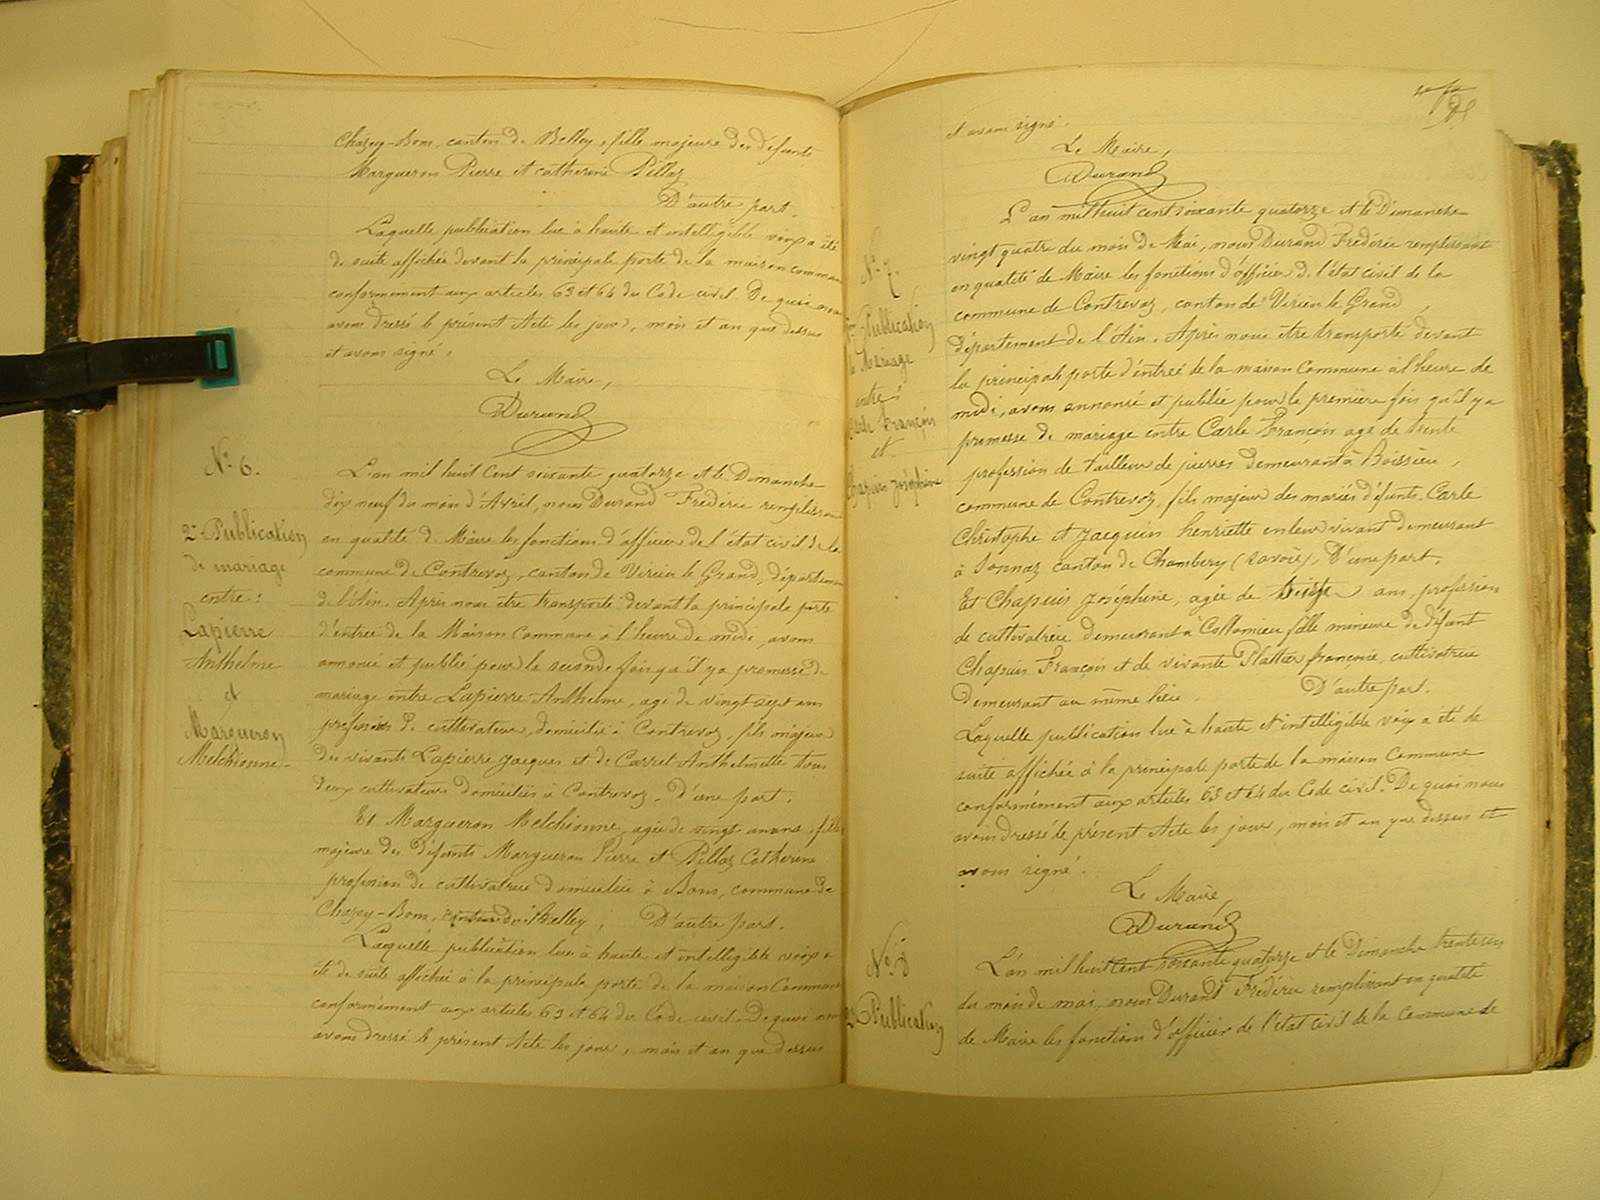 Chazey-Bons, canton de Belley, fille majeure des défunts
Margueron Pierre et Catherine Pillaz
D'autre part.
Laquelle publication lue à haute et intelligible voix a été
de suite affichée devant la principale porte de la maison commune
conformément aux articles 63 et 64 du Code civil De quoi nous
avons dressé le présent Acte les jour, mois et an que dessus
et avons signé.
Le Maire,
Durand
N° 6.
2e Publication
de mariage
entre:
Lapierre
Anthelme
et
Margueron
Melchionne
L'an mil huit Cent soixante quatorze et le Dimanche
dix neuf du mois d'Avril, nous Durand Frédéric remplissant
en qualité de Maire les fonctions d'officier de l'état civil de la
commune de Contrevoz, canton de Virieu le Grand, département
de l'Ain. Après nous être transporté devant la principale porte
d'entrée de la Maison Commune à l'heure de midi, avons
annoncé et publié pour la seconde fois qu'il y a promesse de
mariage entre Lapierre Anthelme, agé de vingt sept ans
profession de cultivateur, domicilié à Contrevoz, fils majeur
des vivants Lapierre Jacques et de Carrel Anthelmette tous
deux cultivateurs domiciliés à Contrevoz, D'une part.
Et Margueron Melchionne, agée de vingt un ans, fille
majeure des défunts Margueron Pierre et Pillaz Catherine
profession de cultivatrice domiciliée à Bons, commune de
Chazey-Bons, canton de Belley, D'autre part.
Laquelle publication lue à haute et intelligible voix a
été de suite affichée à la principale porte de la maison Commune
conformément aux articles 63 et 64 du Code civil. De quoi nous
avons dressé le présent Acte les jour, mois et an que dessus
et avons signé.
Le Maire,
Durand
N° 7.
Publication
de Mariage
entre:
Carle François
et
Chapuis Joséphine
L'an mil huit cent soixante quatorze et le Dimanche
vingt quatre du mois de Mai, nous Durand Frédéric remplissant
en qualité de Maire les fonctions d'officier de l'état civil de la
commune de Contrevoz, canton de Virieu le Grand,
département de l'Ain. Après nous être transporté devant
la principale porte d'entrée de la maison Commune à l'heure de
midi, avons annoncé et publié pour la première fois qu'il y a
promesse de mariage entre Carle François agé de trente
profession de tailleur de pierres demeurant à Boissieu,
commune de Contrevoz, fils majeur des mariés défunts Carle
Christophe et Jacquin henriette en leur vivant demeurant
à Sonnaz canton de Chambery (Savoie), D'une part.
Et Chapuis Joséphine, agée de ans, profession
de cultivatrice demeurant à Collomieu fille mineure de défunt
Chapuis François et de vivante Plattier françoise, cultivatrice
Demeurant au même lieu. D'autre part.
Laquelle publication lue à haute et intelligible voix a été de
suite affichée à la principale porte de la maison Commune
conformément aux articles 63 et 64 du Code civil. De quoi nous
avons dressé le présent Acte les jour, mois et an que dessus et
avons signé.
Le Maire,
Durand
N° 8
2e Publication
L'an mil huit Cent soixante quatorze et le Dimanche trente un
du mois de mai, nous Durand Frédéric remplissant en qualité
de Maire les fonctions d'officier de l'état civil de la Commune de